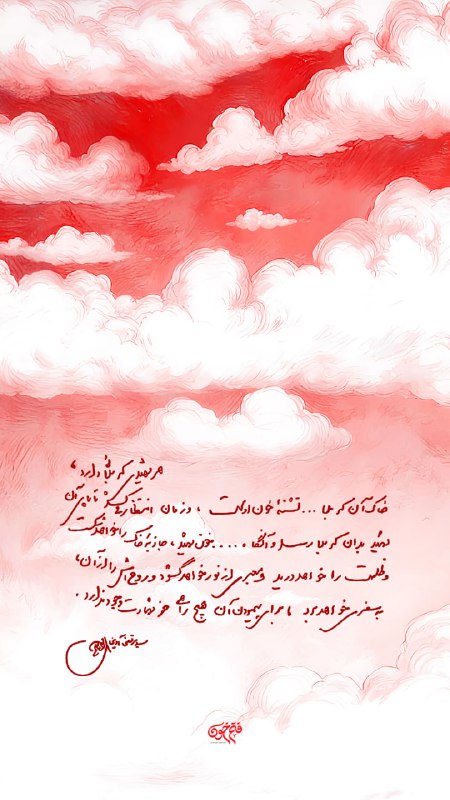 هر شهیدی کربلایی دارد،
خاک آن کربلا ... تشنهٔ خون اوست ، و زمان انتظار می‌کشد تا پای آن
شهید بدان کربلا رسد و آنگاه .... خون شهید ، جاذبهٔ خاک را خواهد شکست
و ظلمت را خواهد درید و معبری از نور خواهد گشود و روحش را از آن،
به سفری خواهد برد که برای پیمودن آن هیچ راهی جز شهادت وجود ندارد.
سید مرتضی آوینی
فتح خون